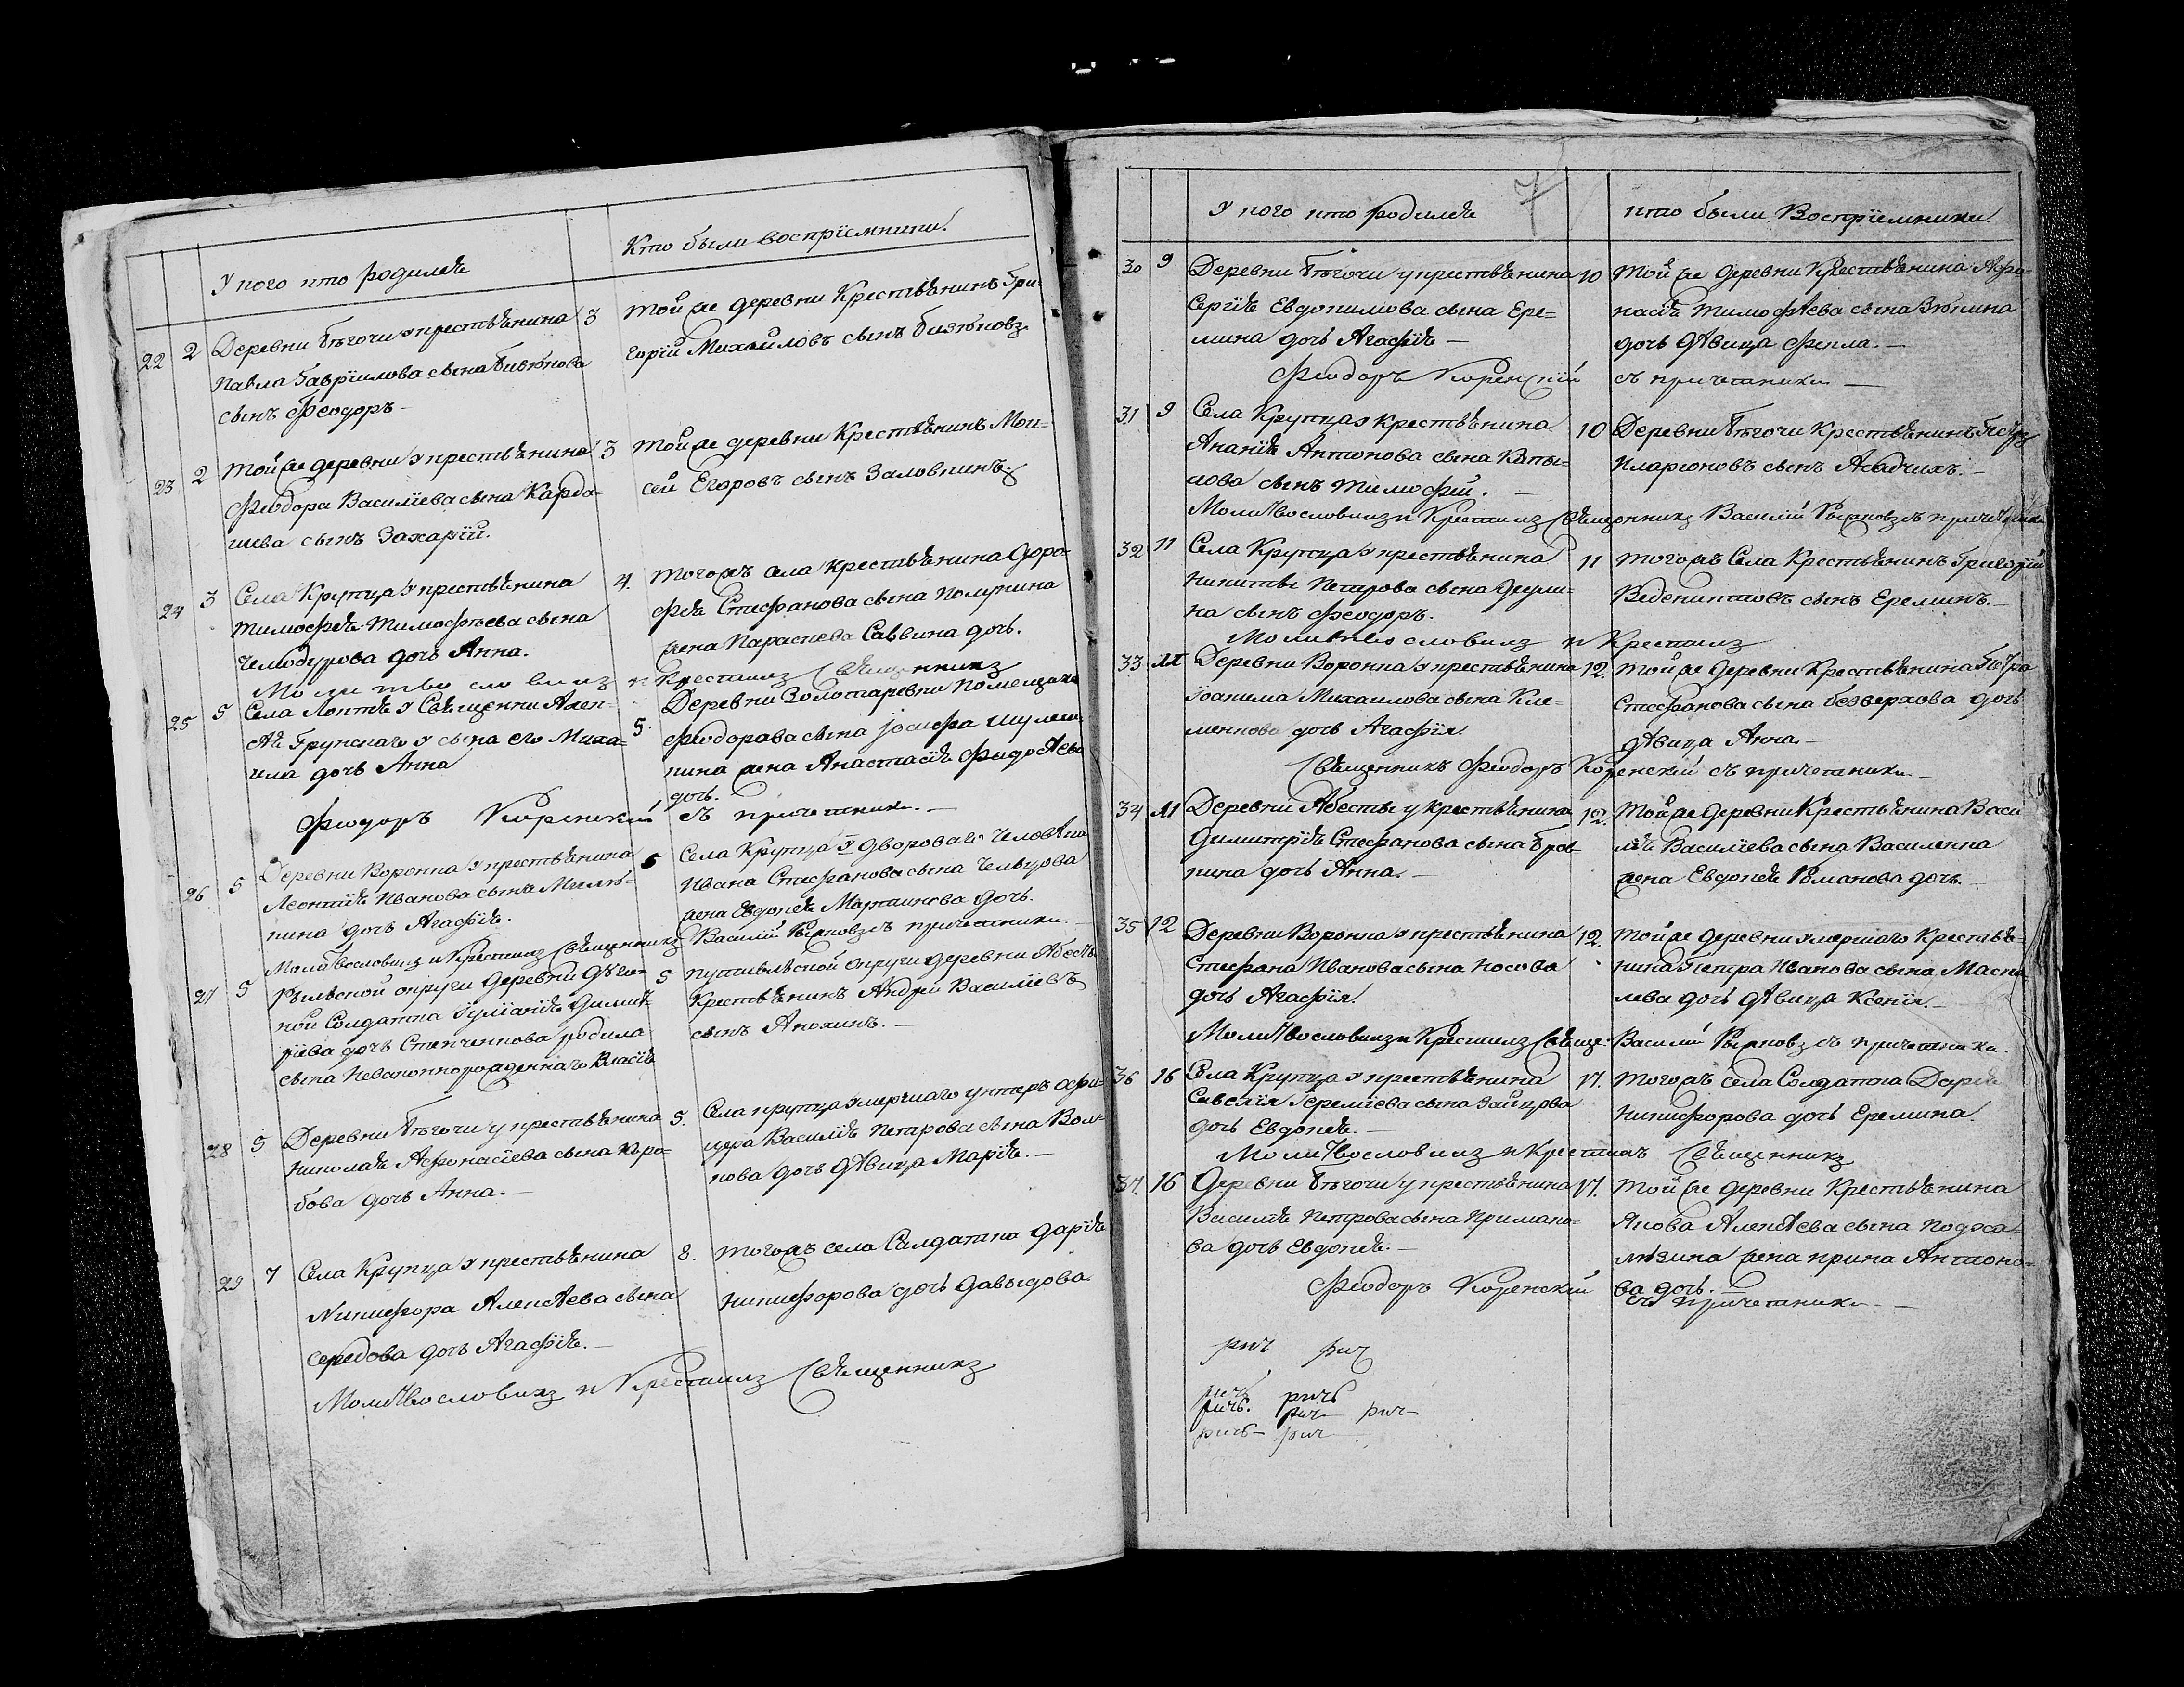 У кого кто родился
Кто были воспрiемники.
22 2 Деревни Бѣгочи у крестьѣнина
Павла Гаврiилова сына Бивюкова
сынъ Феодоръ
3 Той же деревни Крестьѣнинъ Гри-
горiй Михайловъ сынъ
23 2 Той же деревни у крестьѣнина
Феодора Василiева сына Карда-
шева сынъ Захарiй.
3 Той же деревни Крестьѣнинъ Мои-
сей Егоровъ сынъ
24 3 Села Крупца у крестьѣнина
Тимофѣя Тимофѣева сына
Чемодурова дочь Анна.
4. Тогожъ села крестьѣнина Доро-
фѣя Стефанова сына
жена Параскева Саввина дочь.
Молитвословилъ и Крестилъ Свѣщенникъ
25 5 Села у Свѣщенника Алек-
сѣя у сына его Миха-
ила дочь Анна
5. Деревни Золотаревки
Феодорова сына Iосифа
жена Анастасiя Федосѣева
дочь.
Феодоръ Коренскiй съ причетники.
26 5 Деревни Воронка у крестьѣнина
Леонтiя Иванова сына
дочь Агафiя.
5 Села Крупца у двороваго человѣка
Ивана Стефанова сына
жена Евдокiя Мартинова дочь.
Молитвословилъ и Крестилъ Свѣщенникъ Василiй съ причетники
27 5 Рыльской округи деревни
Солдатка Iулiанiя Димит-
рiева дочь родила
сына незаконнорожденнаго Власiя
5 Путивльской округи деревни
Крестьѣнинъ Андрей Василiевъ
сынъ Анохинъ.
28 5 Деревни Бѣгочи у крестьѣнина
Николая Афонасiева сына Коро-
бова дочь Анна.
5. Села Крупца умершаго унтеръ офи-
цера Василiя Петрова сына Вол-
кова дочь дѣвица Марiя.
29 7 Села Крупца у крестьѣнина
Никифора Алексѣева сына
Середова дочь Агафiя.
8. Тогожъ села Солдатка Дарiя
Никифорова дочь Давыдова
Молитвословилъ и Крестилъ Свѣщенникъ
7
У кого кто родился
Кто были Воспрiемники
30 9 Деревни Бѣгочи у крестьѣнина
Сергiя Евдокимова сына Ере-
мина дочь Агафiя
10 Той же деревни Крестьѣнина Афо-
насiя Тимофѣева сына Зюкина
дочь дѣвица Фекла.
Феодоръ Коренскiй съ причетники
31 9 Села Крупца у крестьѣнина
Ананiя Антонова сына Капы-
лова сынъ Тимофей.
10 Деревни Бѣгочи Крестьѣнинъ Петръ
Иларiоновъ сынъ
Молитвословилъ и Крестилъ Свѣщенникъ Василiй съ причетники
32 11 Села Крупца у крестьѣнина
Никиты Петрова сына
сынъ Феодоръ.
11 Тогожъ Села Крестьѣнинъ Григорiй
Веденихтовъ сынъ Ереминъ.
Молитвословилъ и Крестилъ
33 11 Деревни Воронка у крестьѣнина
Iоакима Михаилова сына Кле-
менкова дочь Агафiя.
12. Той же деревни Крестьѣнина Петра
Стефанова сына Безверхова дочь
дѣвица Анна.
Свѣщенникъ Феодоръ Коренскiй съ причетники
34 11 Деревни у крестьѣнина
Димитрiя Стефанова сына
дочь Анна.
12. Той же деревни Крестьѣнина Васи-
лiя Василiева сына Василенка
жена Евдокiя Романова дочь.
35 12 Деревни Воронка у крестьѣнина
Стефана Иванова сына Носова
дочь Агафiя.
12. Той же деревни умершаго Крестьѣ-
нина Петра Иванова сына
дочь дѣвица Ксенiя.
Молитвословилъ и Крестилъ Свѣще: Василiй съ причетники.
36 16 Села Крупца у крестьѣнина
Савелiя Iеремiева сына Зайцова
дочь Евдокiя.
17. Тогожъ села Солдатка Дарiя
Никифорова дочь Еремина.
Молитвословилъ и Крестилъ Свѣщенникъ
37. 16 Деревни Бѣгочи у крестьѣнина
Василiя Петрова сына Примако-
ва дочь Евдокiя.
17. Той же деревни Крестьѣнина
Якова Алексѣева сына
жена Ирина Антоно-
ва дочь.
Феодоръ Коренскiй съ причетники